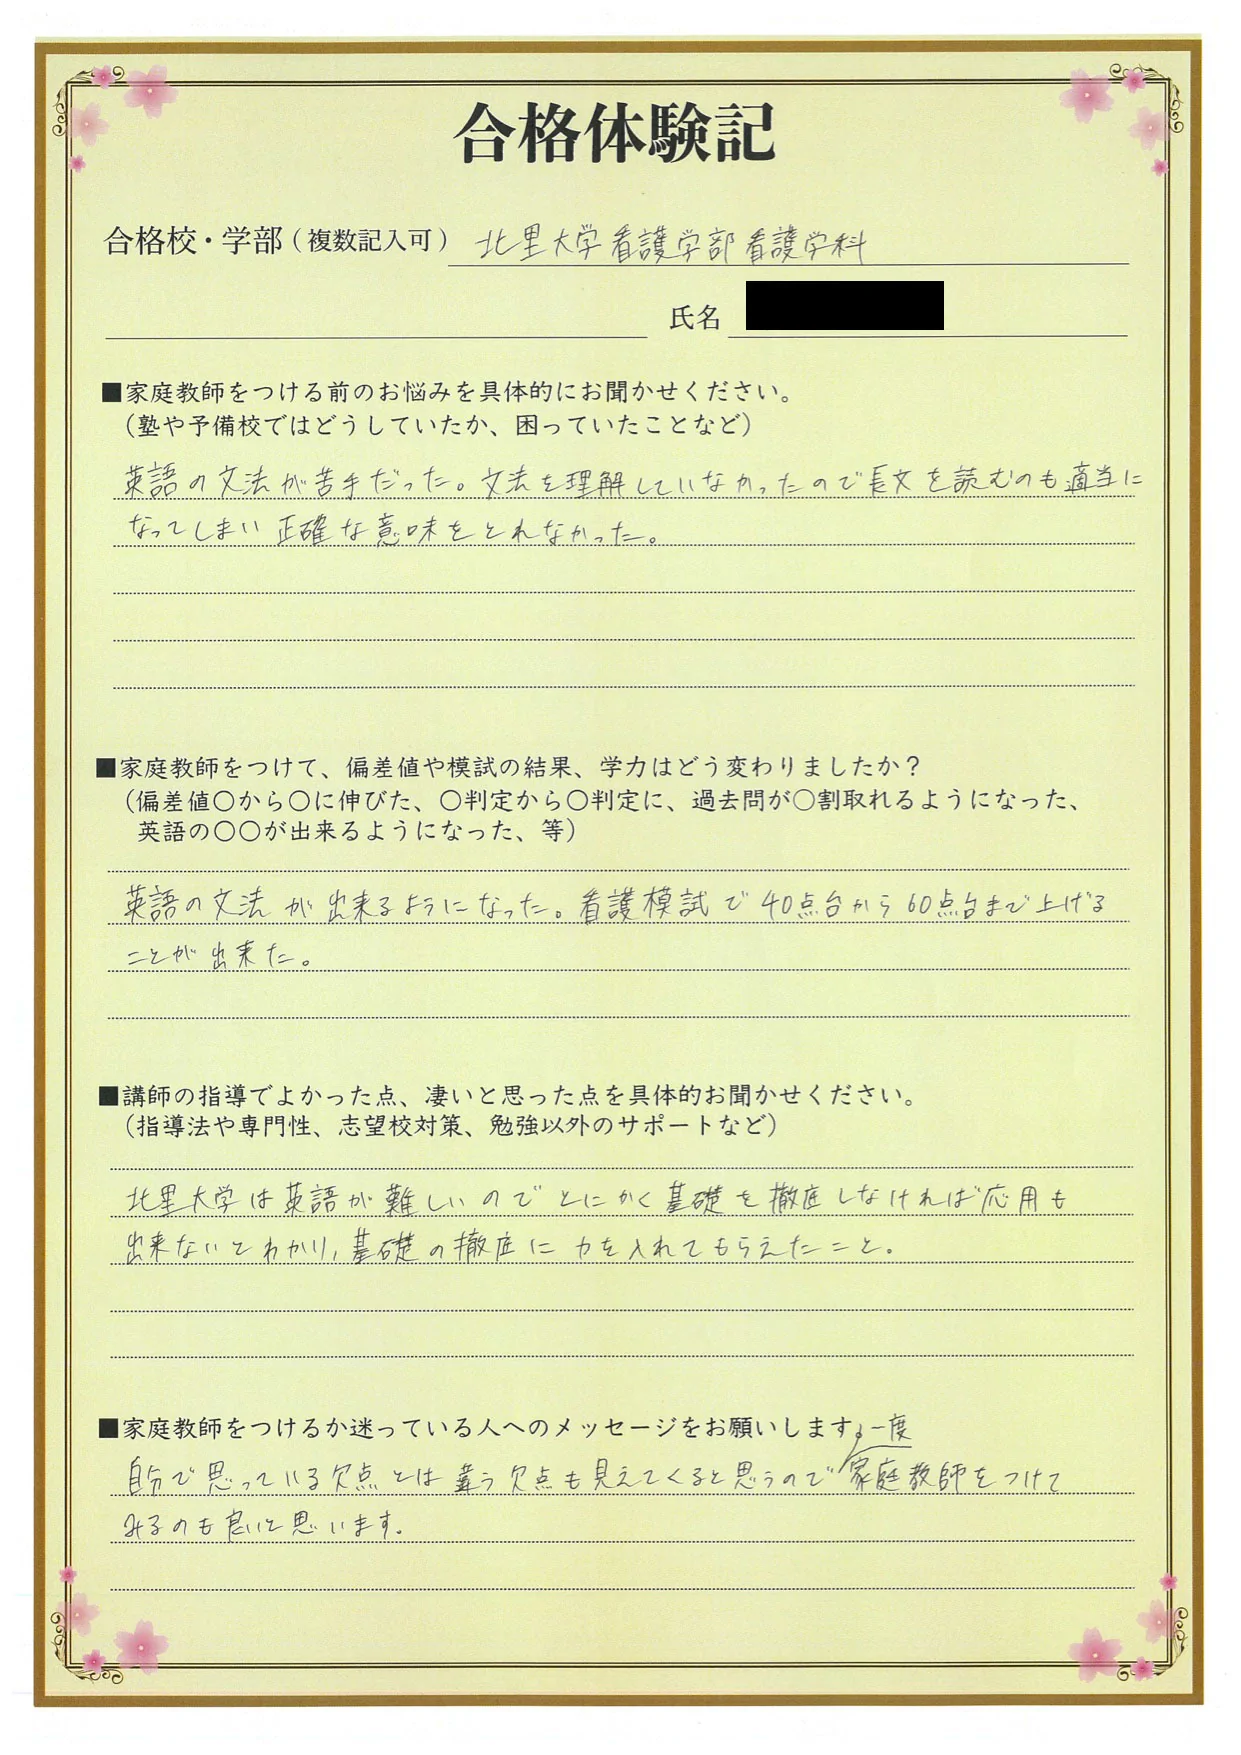 合格体験記
合格校・学部（複数記入可） 北里大学看護学部看護学科
氏名
■家庭教師をつける前のお悩みを具体的にお聞かせください。
（塾や予備校ではどうしていたか、困っていたことなど）
英語の文法が苦手だった。文法を理解していなかったので長文を読むのも適当に
なってしまい正確な意味をとれなかった。
■家庭教師をつけて、偏差値や模試の結果、学力はどう変わりましたか？
（偏差値〇から〇に伸びた、〇判定から〇判定に、過去問が〇割取れるようになった、
英語の〇〇が出来るようになった、等）
英語の文法が出来るようになった。看護模試で40点台から60点台まで上げる
ことが出来た。
■講師の指導でよかった点、凄いと思った点を具体的お聞かせください。
（指導法や専門性、志望校対策、勉強以外のサポートなど）
北里大学は英語が難しいのでとにかく基礎を徹底しなければ応用も
出来ないとわかり、基礎の徹底に力を入れてもらえたこと。
■家庭教師をつけるか迷っている人へのメッセージをお願いします。
一度
自分で思っている欠点とは違う欠点も見えてくると思うので家庭教師をつけて
みるのも良いと思います。